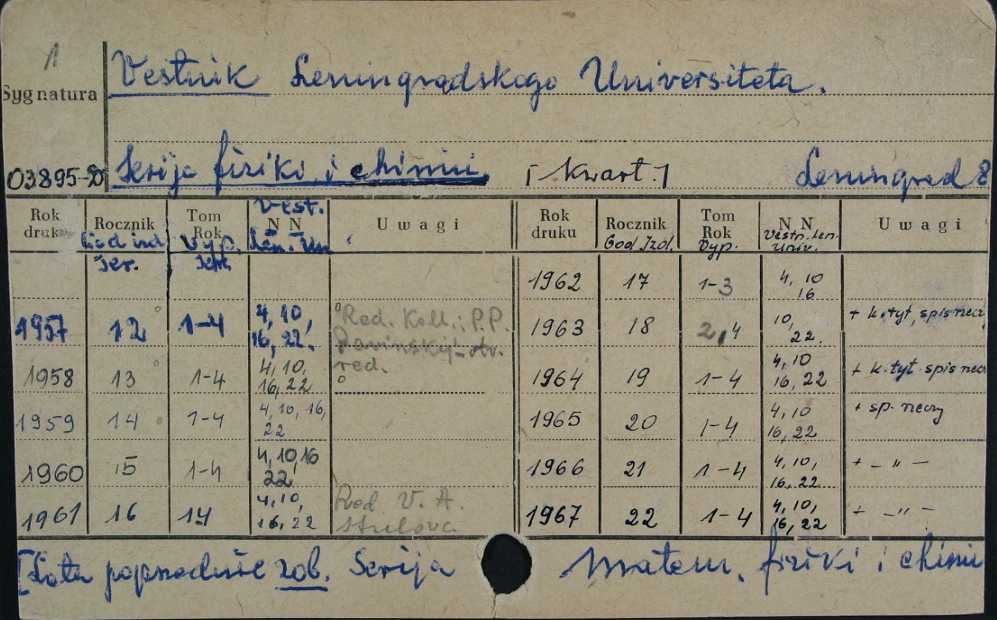 1
Sygnatura Vestnik Leningradskogo Universiteta.
03895-So Serija fiziki i chimii, [Kwart.] Leningrad 8
Rok druku Rocznik God izd. Ser. Tom Rok Vyp. Vest. N N Len. Un Uwagi Rok druku Rocznik God Izd. Tom Rok Vyp. N N Vestn. Len. Univ. Uwagi
1962 17 1-3 4, 10 16
1957 12 1-4 4, 10, 16, 22. Red. Koll.: P.P. Pavinskij-otv. red. 1963 18 2, 4 10, 22. + k.tyt, spis rzeczy
1958 13 1-4 4, 10, 16, 22 1964 19 1-4 4, 10 16, 22 + k.tyt. spis rzeczy
1959 14 1-4 4, 10, 16, 22 1965 20 1-4 4, 10 16, 22 + sp. rzeczy
1960 15 1-4 4, 10, 16 22 1966 21 1-4 4, 10, 16, 22 + - " -
1961 16 14 4, 10, 16, 22 Red V. A. 1967 22 1-4 4, 10, 16, 22 + - " -
[Lata poprzednie zob. Serija matem, fiziki i chimii